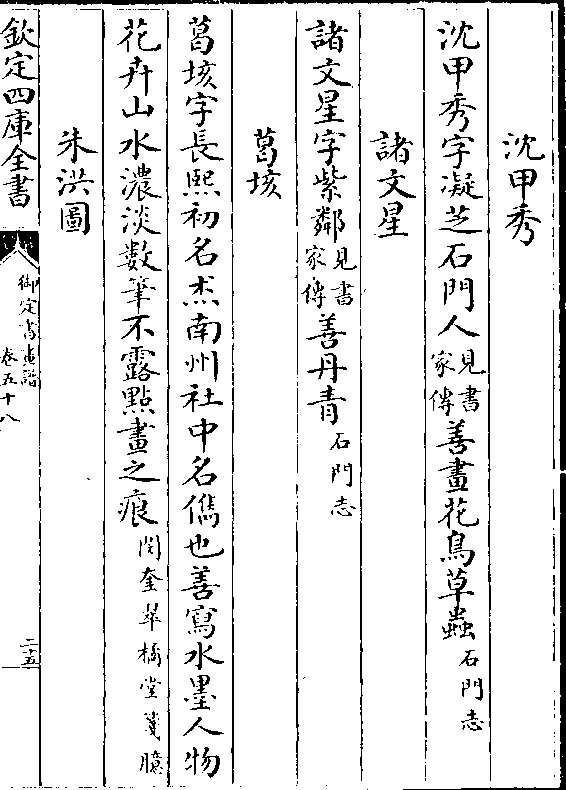 沈甲秀
沈甲秀字凝芝石門人見書家傳善畫花鳥草蟲石門志
諸文星
諸文星字紫鄰見書家傳善丹青石門志
葛垓
葛垓字長熙初名杰南州社中名儁也善寫水墨人物
花卉山水濃淡數筆不露點畫之痕閔奎翠橘堂箋臆
朱洪圖
欽定四庫全書
御定書畫譜
卷五十八
二五